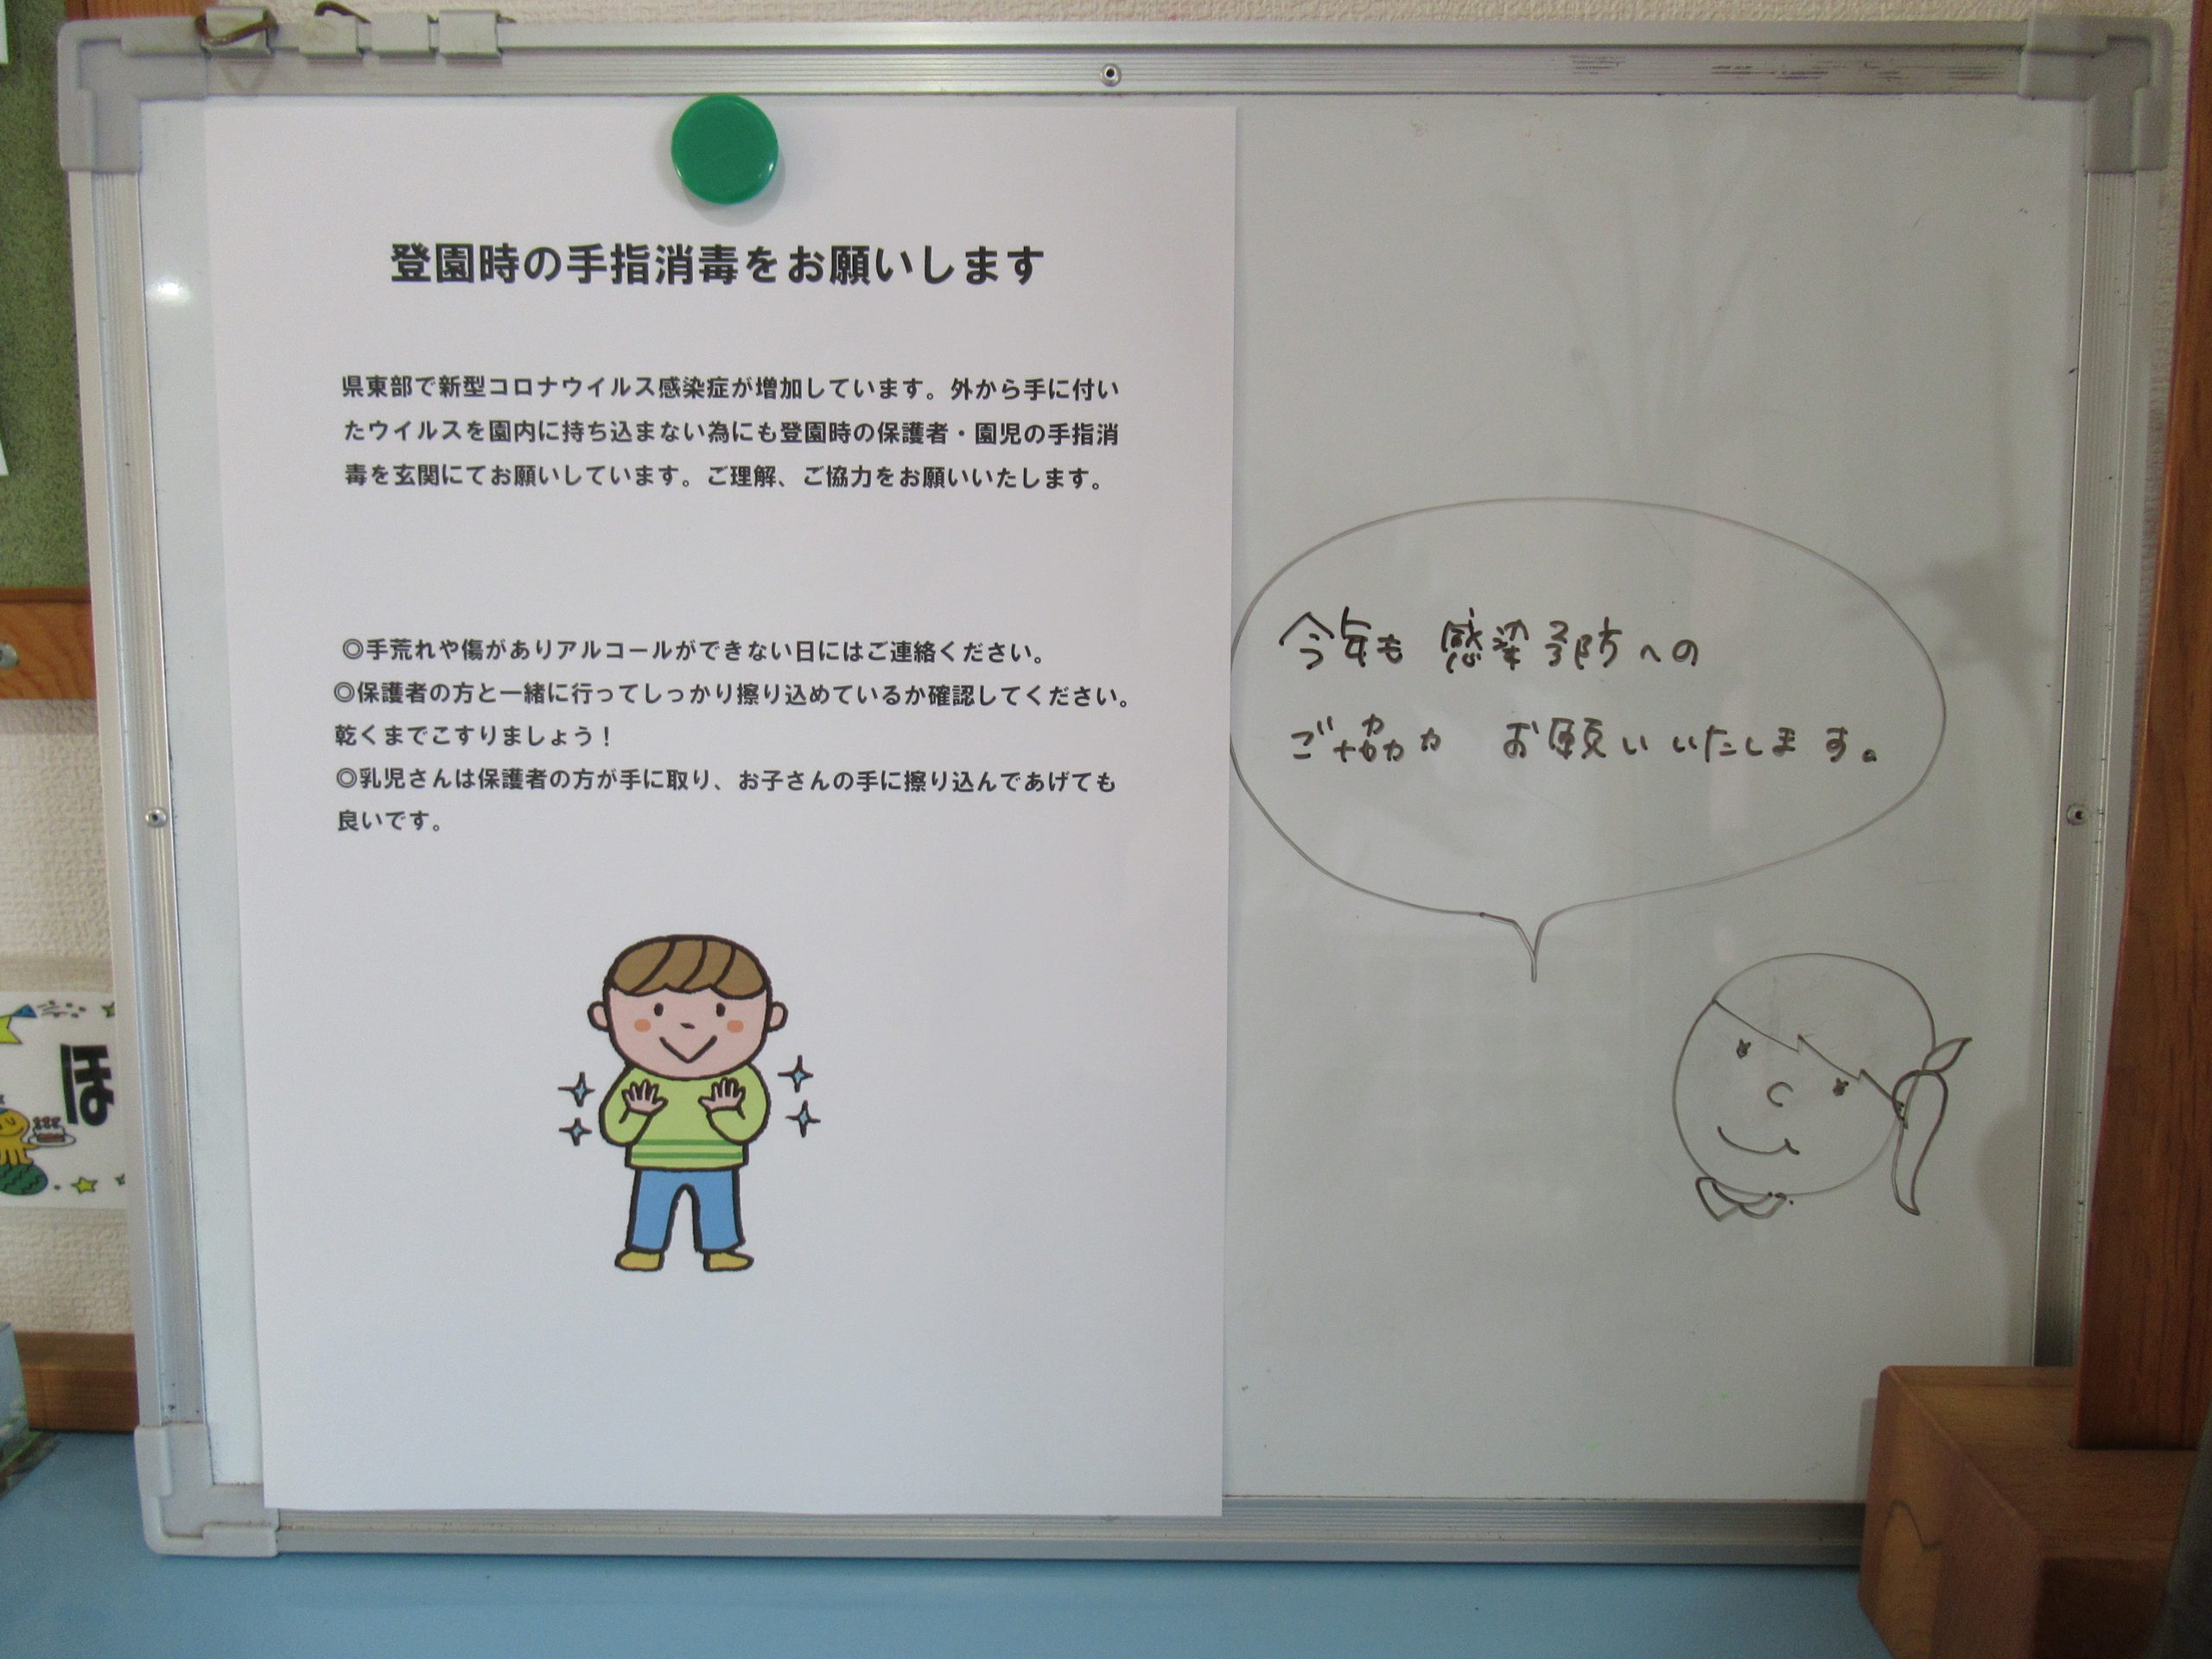 登園時の手指消毒をお願いします
県東部で新型コロナウイルス感染症が増加しています。外から手に付い
たウイルスを園内に持ち込まない為にも登園時の保護者・園児の手指消
毒を玄関にてお願いしています。ご理解、ご協力をお願いいたします。
◎手荒れや傷がありアルコールができない日にはご連絡ください。
◎保護者の方と一緒に行ってしっかり擦り込めているか確認してください。
乾くまでこすりましょう！
◎乳児さんは保護者の方が手に取り、お子さんの手に擦り込んであげても
良いです。
今年も 感染予防への
ご協力 お願いいたします。
ほ